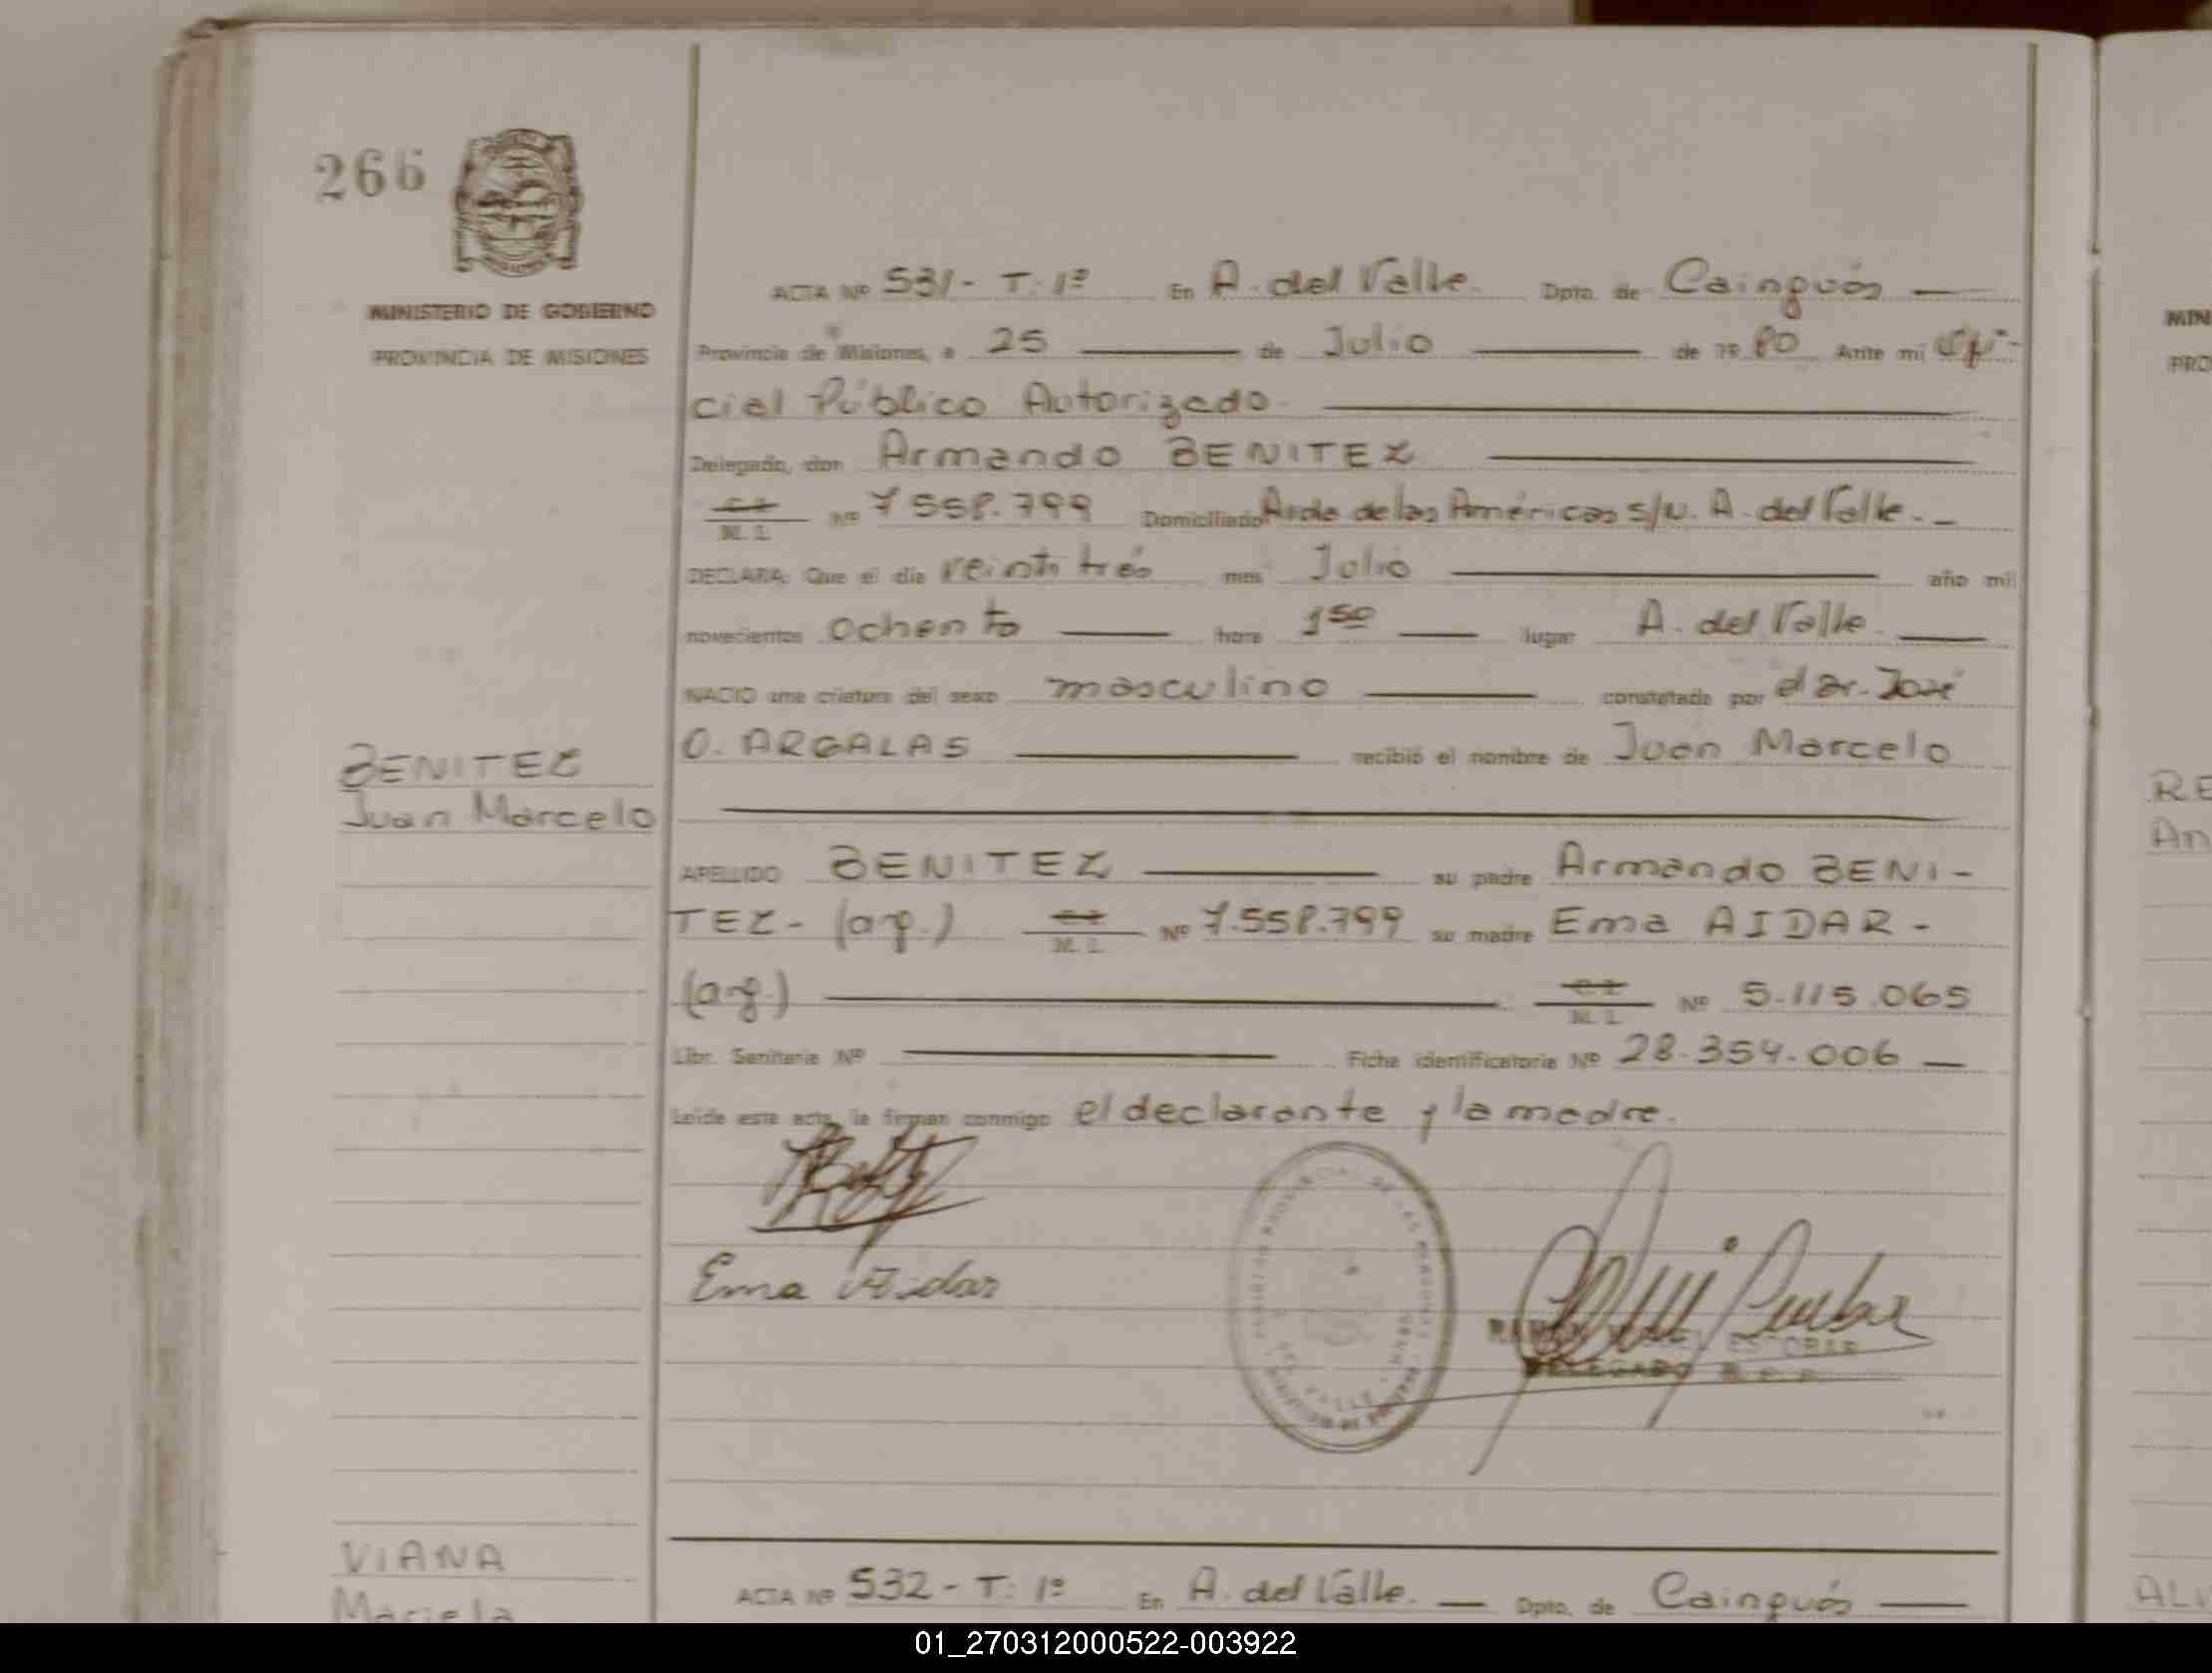 266
MINISTERIO DE GOBIERNO
PROVINCIA DE MISIONES
ACTA Nº 531- T: 1º En A. del Valle. Dpto. de Cainguás —
Provincia de Misiones, a 25 — de Julio — de 19 80 Ante mi Ofi-
cial Público Autorizado. —
Delegado, don Armando BENITEZ —
C.I.
M. I. Nº 7 558.799 Domiciliado Avda de las Américas s/n. A. del Valle. -
DECLARA: Que el día veintitrés mes Julio — año mil
novecientos ochenta — hora 1 50 — lugar A. del Valle. —
NACIO una criatura del sexo masculino — constatado por el dr. José
O. ARGALAS — recibió el nombre de Juan Marcelo
BENITEZ
Juan Marcelo
APELLIDO BENITEZ — su padre Armando BENI-
TEZ- (arg.) C.I. M. I. Nº 7.558.799 su madre Ema AIDAR -
(arg.) — C.I. M. I. Nº 5.115.065
Libr. Sanitaria Nº — Ficha identificatoria Nº 28.354.006 —
Leída esta acta, la firman conmigo el declarante y la madre.
Ema Aidar
ESCOBAR
DELEGADO
VIANA
Mariela
ACTA Nº 532 - T: 1º En A. del Valle. — Dpto. de Cainguás —
MIN
PRO
RE
An
AL
01_270312000522-003922